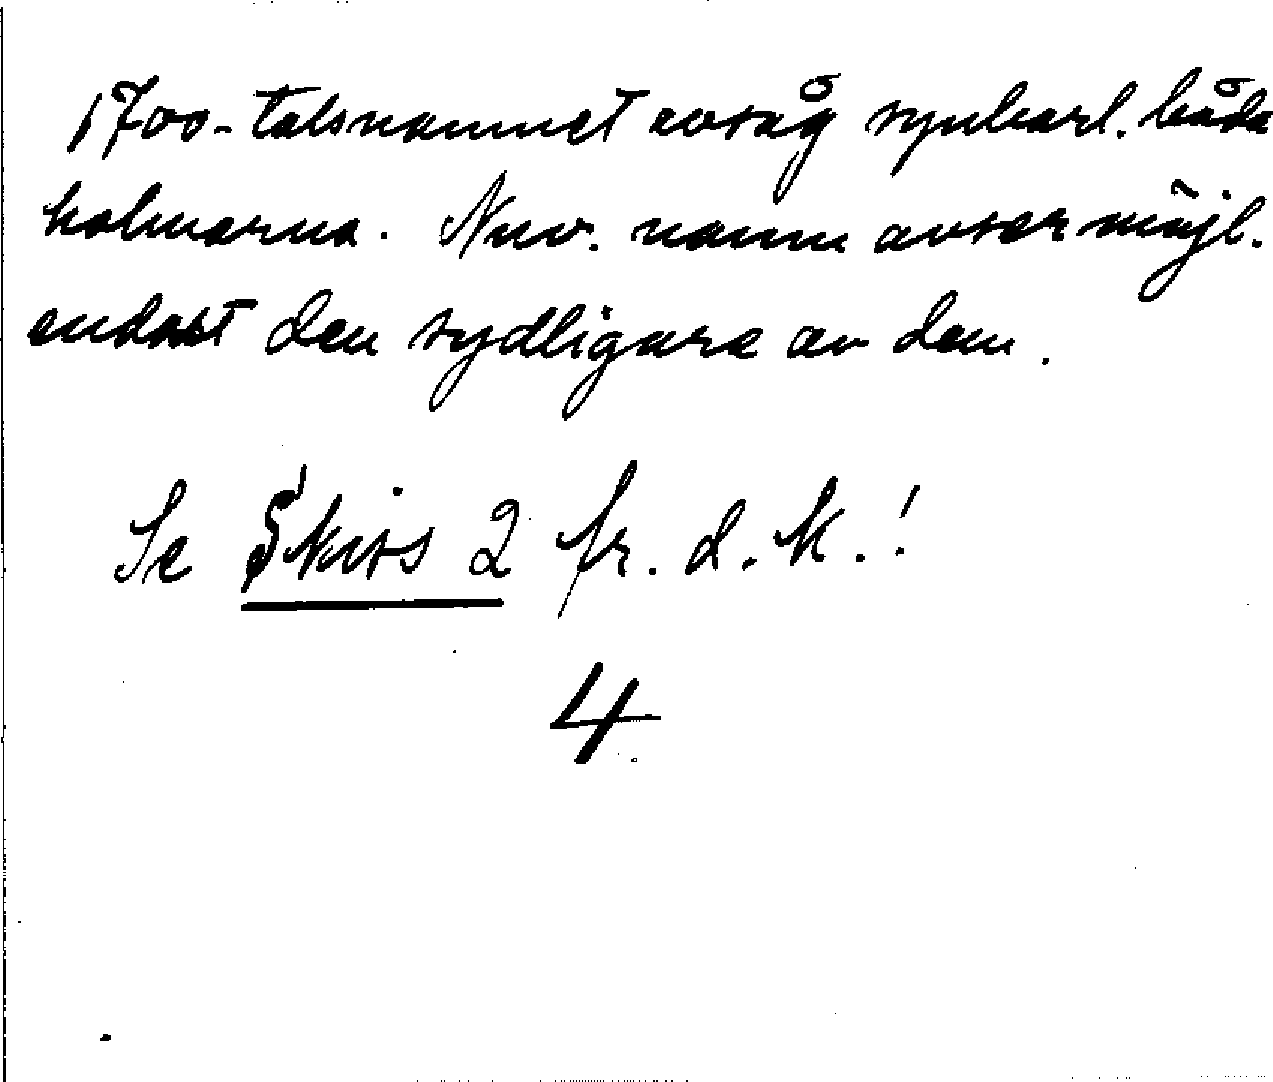 1700-talsnamnet avsåg synbarl. båda
holmarna. Nuv. namn avser möjl.
endast den sydligare av dem.
Se Skiss 2 fr. d. k.!
4